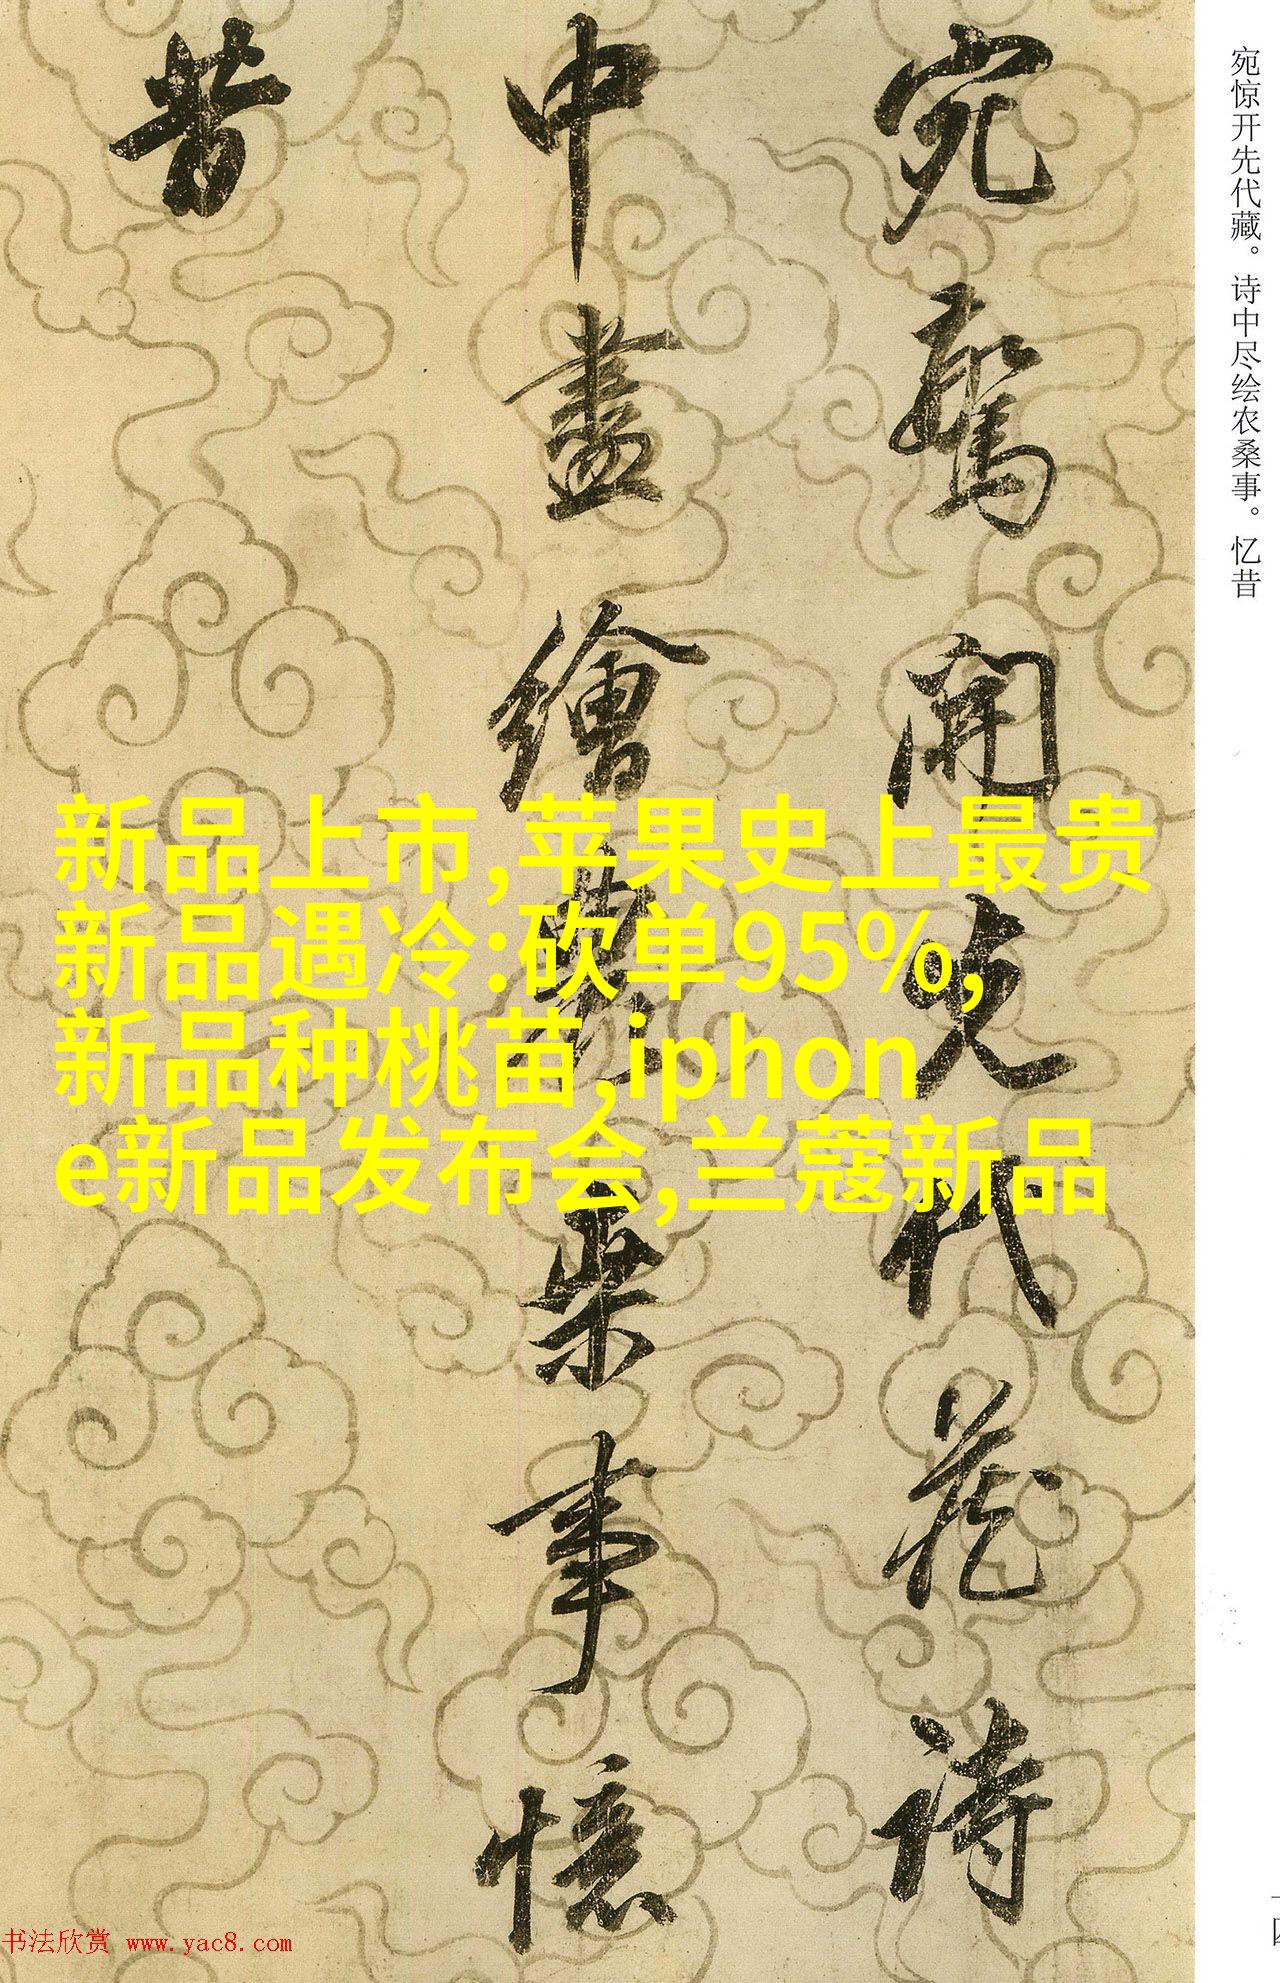 宛驚開先代藏詩
中盡繪農桑事憶
昔
宛惊开先代藏。诗中尽绘农桑事。忆昔
新品上市,苹果史上最贵
新品遇冷:砍单95%,
新品种桃苗,iphon
e新品发布会,兰蔻新品
书法欣赏 www.yac8.com